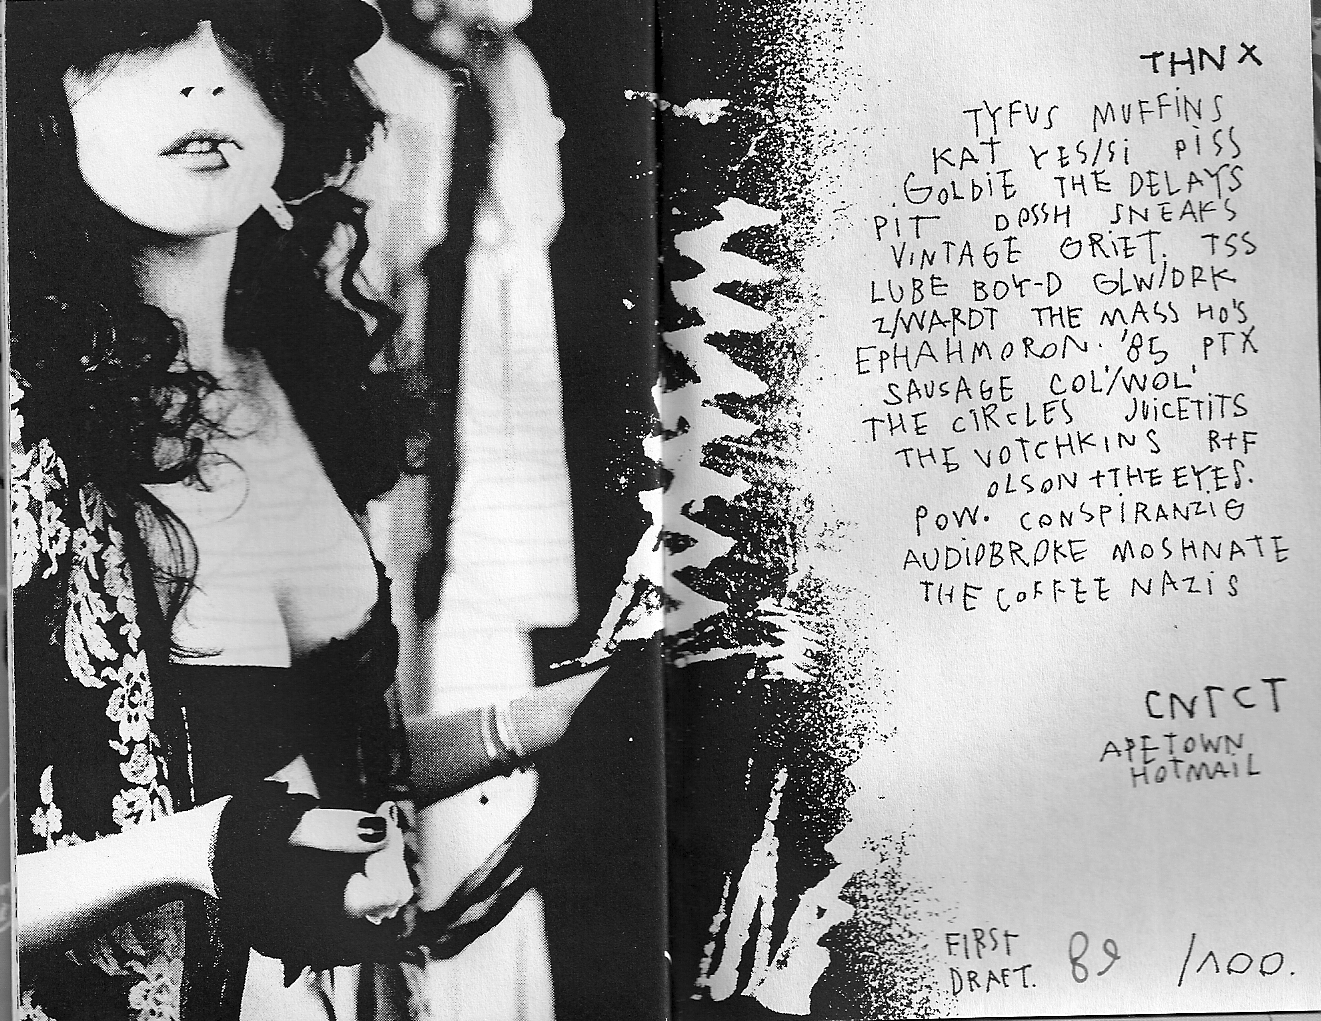 THNX
TYFUS MUFFINS
KAT YES/Si PiSS
GOLDiE THE DELAYS
PIT DOSSH SNEAKS
ViNTAGE GRiET. TSS
LUBE BOY-D GLW/DRK
Z/WARDT THE MASS HO'S
EPHAHMORON. '85 PTX
SAUSAGE COL'/WOL'
THE CiRCLES JUiCETiTS
THE VOTCHKiNS R+F
OLSON + THE EYES.
POW. CONSPiRANZiG
AUDiOBROKE MOSHNATE
THE COFFEE NAZiS
CNTCT
APETOWN
HOTMAiL
FiRST
DRAFT. 89 /100.